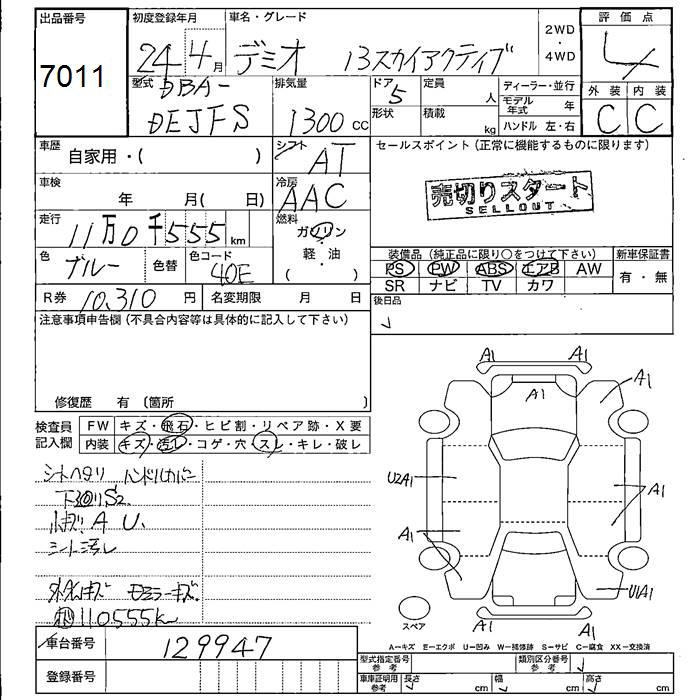 出品番号
7011
初度登録年月
24 4月
車名・グレード
デミオ 13スカイアクティブ
2WD
・
4WD
評価点
4
型式
DBA-
DEJFS
排気量
1300 cc
ドア
5
形状
定員
人
積載
kg
ディーラー・並行
モデル年式 年
ハンドル 左・右
外装 内装
C C
車歴
自家用・( )
シフト
AT
車検
年 月( 日)
冷房
AAC
走行
11万0千555km
燃料
ガソリン
・
軽・油
( )
色
ブルー
色替
色コード
40E
R券 10,310 円
名変期限 月 日
セールスポイント (正常に機能するものに限ります)
売切りスタート
SELLOUT
装備品 (純正品に限り○をつけて下さい)
新車保証書
PS PW ABS エアB AW
有・無
SR ナビ TV カワ
後日品
注意事項申告欄 (不具合内容等は具体的に記入して下さい)
修復歴 有 〔箇所 〕
検査員記入欄
FW キズ・飛石・ヒビ割・リペア跡・X要
内装 キズ・汚レ・コゲ・穴・スレ・キレ・破レ
シートヘタリ ハンドルカバー
A U.
シート汚レ
110555k
A1 A1
A1 A1
U2A1
A1
A1
U1A1
A1 A1
スペア
A-キズ E-エクボ U-凹み W-補修跡 S-サビ C-腐食 XX-交換済
車台番号 129947
登録番号
型式指定番号
参考
類別区分番号
参考
車庫証明用
参考
長さ cm
幅 cm
高さ cm